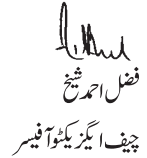 فضل احمد شیخ
چیف ایگزیکٹو آفیسر